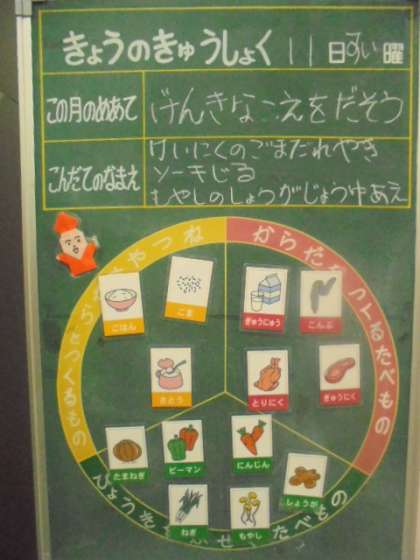 きょうのきゅうしょく 11日すい曜
この月のめあて げんきなこえをだそう
こんだてのなまえ けいにくのごまだれやき
ソーキじる
もやしのしょうがじょうゆあえ
からだをつくるたべもの
ごはん
ごま
ぎゅうにゅう
こんぶ
さとう
とりにく
ぎゅうにく
たまねぎ
ピーマン
にんじん
しょうが
ねぎ
もやし